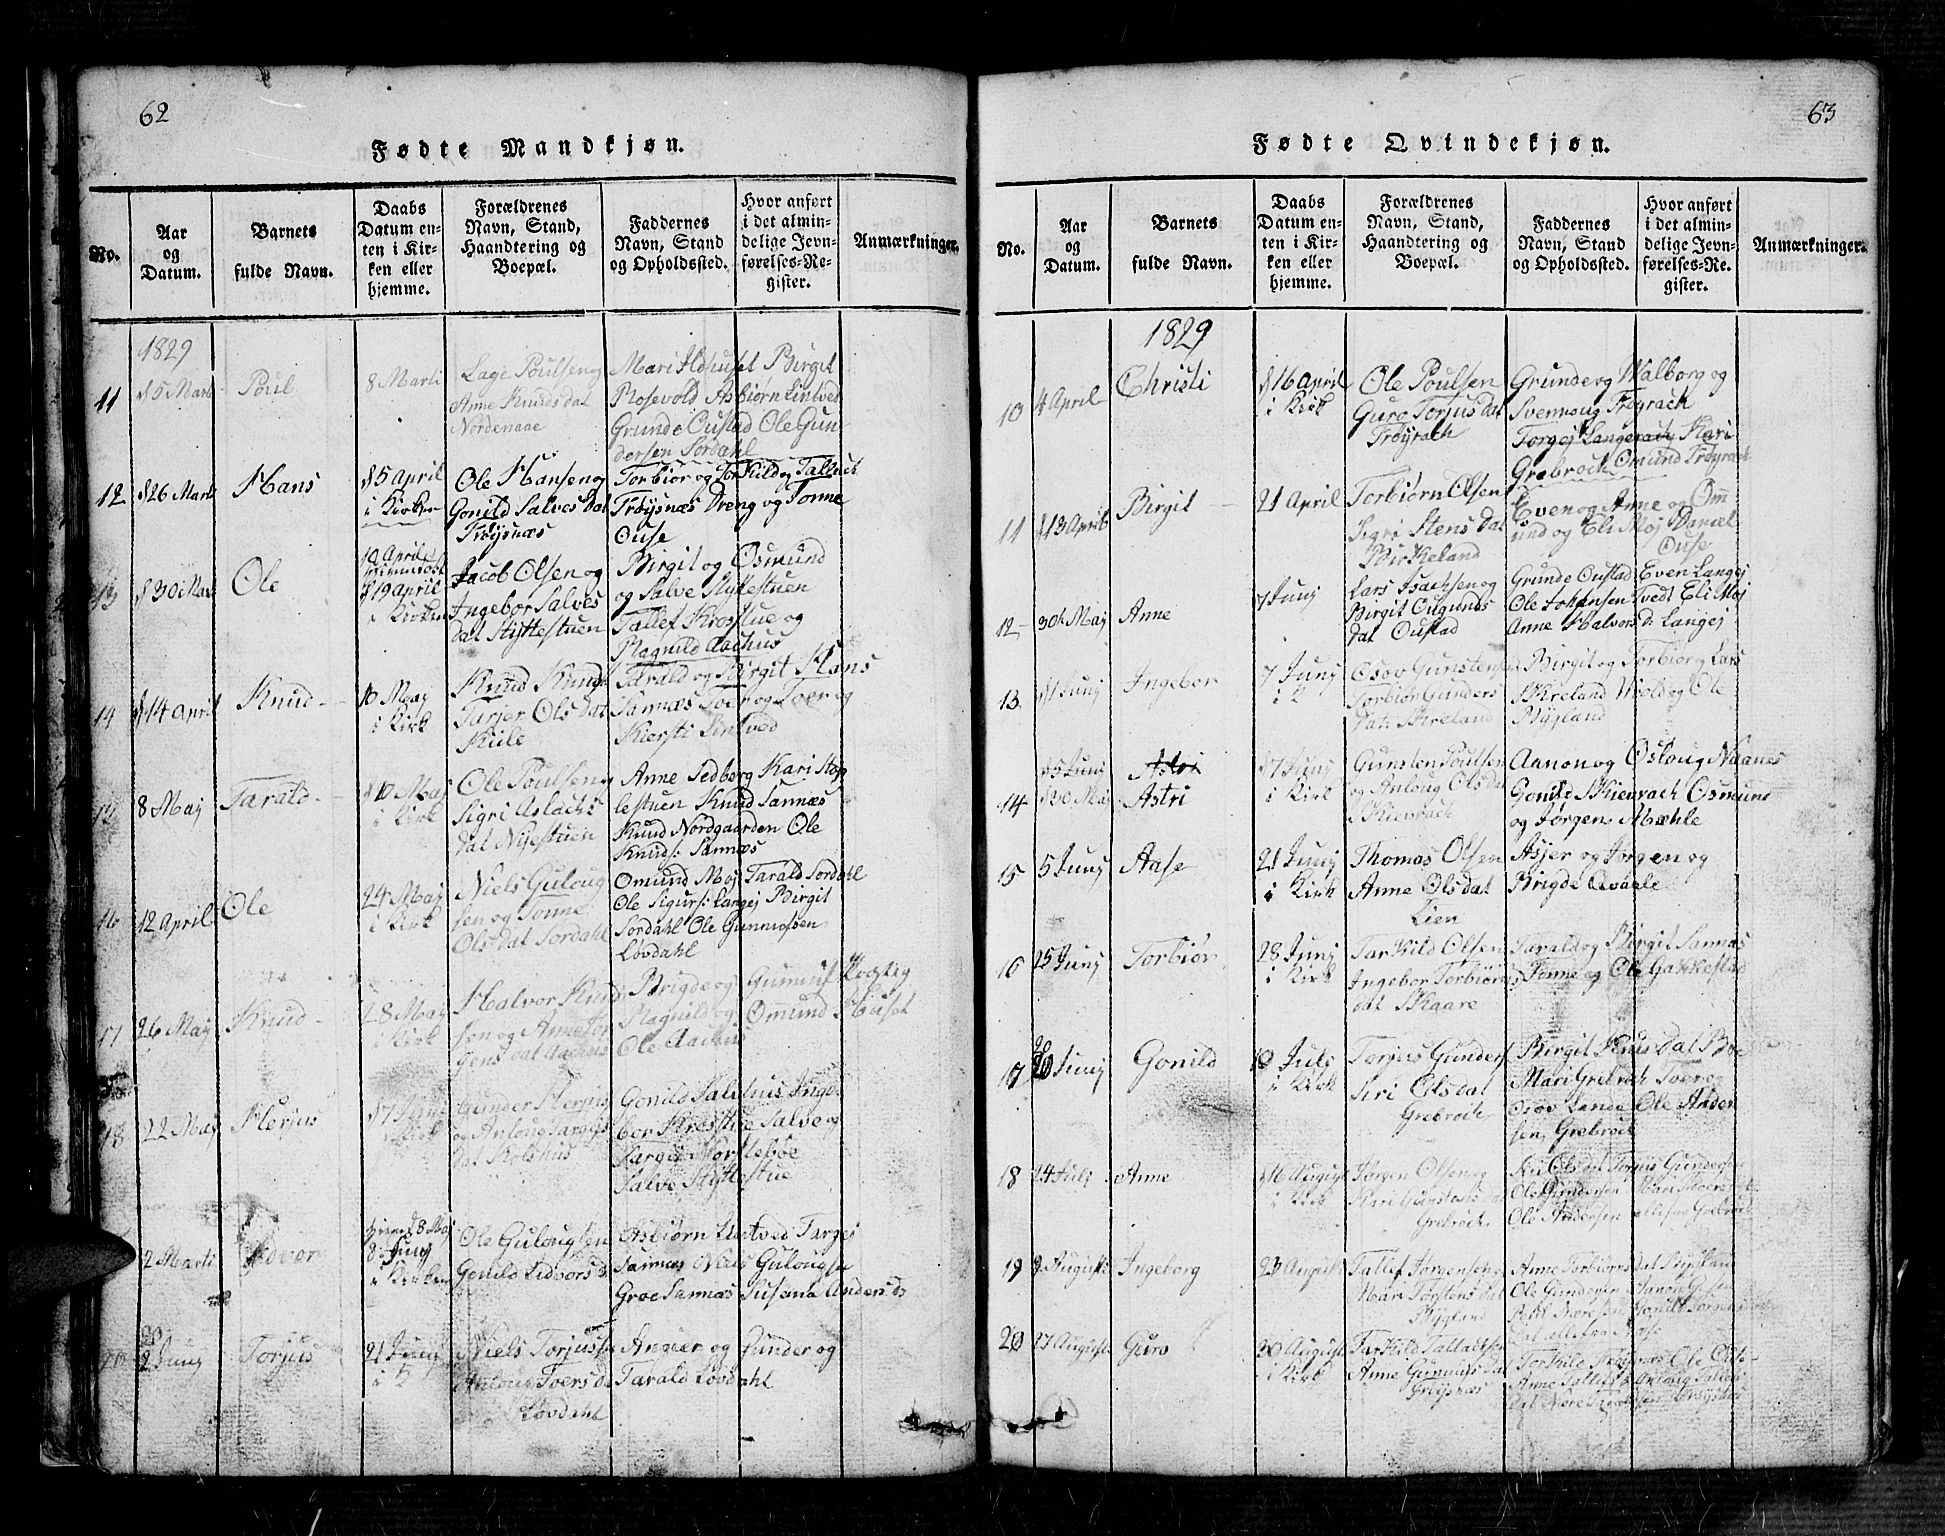 62
Fødte Mandkjøn.
No.
Aar
og
Datum.
Barnets
fulde Navn.
Daabs
Datum en-
ten i Kir-
ken eller
hjemme.
Forældrenes
Navn, Stand,
Haandtering og
Boepæl.
Faddernes
Navn, Stand
og Opholdssted.
Hvor anført
i det almin-
delige Jevn-
førelses-Re-
gister.
Anmærkninger.
1829
11
5 Marti
Poul
8 Marti
Lage Poulsen og
Anne Knudsdat
Nordenaae
Mari Ildhuset Birgit
Rosevold Asbiørn Lintved
Grunde Oustad Ole Gun-
dersen Sordahl
12
26 Marti
Hans
5 April
i Kirken
Ole Hansen og
Gonild Salves Dat
Frøysnæs
Torbiør og Torkild og Tallach
Frøysnæs Dreng og Tonne
Ouse
13
30 Mart
Ole
10 April
19 April
i Kirken
Jacob Olsen og
Ingebor Salves
dat Støttestuen
Birgit og Osmund
og Salve Støttestuen
Tallef Krosstue og
Ragnild Aachus
14
14 April
Knud
10 Maj
i Kirk
Knud Knuds
Tarjer Olsdat
Kiile
Tarald og Birgit Hans
Sannæs Toer og Toer og
Kiersti Lintved
8 Maj
Tarald
10 Maj
i Kirk
Ole Poulsen og
Sigri Aslachs
dat Nijestuen
Anne Sedberg Kari Stop
lestuen Knud Sannæs
Knud Nordgaarden Ole
Knuds: Sannæs
16
12 April
Ole
24 Maj
i Kirk
Niels Guloug
sen og Tonne
Olsdat Sordahl
Omund Moj Tarald Sordahl
Ole Sigurs: Langej Birgit
Sordahl Ole Gunnufsen
Løvdahl
17
26 Maj
Knud
28 Maj
i Kirk
Halvor Knud
sen og Anne Jør
gens dat Aachus
Brigde og Gunnuf
Ragnild og Omund
Ole Aachus
18
22 Maj
Herjus
7 Junj
i Kirk
Gunder Herjus
og Anloug Targjs
dat Kolshus
Gonild Salthuus Inge
bor Krosstue Salve og
Targie Norstebøe
Salve Støttestue
2 Marti
8 Maj
8 Junj
i Kirken
Ole Gulougsen
Gonild Lidvors d
Asbiørn Lintved Targes
Sannæs Niels Gulougsen
Groe Sannæs Susana Anders d
20
2 Junj
Torjus
21 Junj
i K
Niels Torjuss
Anloug Toers d
Løvdahl
Angier og Gunder og
Tarald Løvdahl
63
Fødte Qvindekjøn.
No.
Aar
og
Datum.
Barnets
fulde Navn.
Daabs
Datum en-
ten i Kir-
ken eller
hjemme.
Forældrenes
Navn, Stand,
Haandtering og
Boepæl.
Faddernes
Navn, Stand
og Opholdssted.
Hvor anført
i det almin-
delige Jevn-
førelses-Re-
gister.
Anmærkninger.
1829
10
4 April
Christi
16 April
i Kirk
Ole Poulsen
Guro Torjus dat
Frøyrach
Grunde og Walborg og
Svennoug Frøyrach
Torgej Langerach Kari
Grebroch Omund Frøyrach
11
13 April
Birgit
21 April
Torbiørn Olsen
Sigri Stens dat
Birkeland
Even og Anne og Om
und og Eli Moj Daniel
Ouse
12
30te Maj
Anne
7 Junj
Lars Isachsen og
Birgit Ougunds
dat Oustad
Grunde Oustad Even Langej
Ole Johansen Tvedt Eli Moj
Anne Halvors d: Langej
13
1 Junj
Ingebor
7 Junj
i K
Osov Gunstens
Torbiør Gunders
dat: Skreland
Birgit og Torbiør og Lars
Skreland Wiold og Ole
Bygland
14
5 Junj
30 Maj
Astri
Astri
7 Junj
i Kirk
Gunsten Poulsen
og Anloug Olsdat
Skievrach
Aanon og Osloug Naanes
Gonild Skievrach Osmund
og Jørgens Mæhle
15
5 Junj
Aase
21 Junj
i Kirk
Thomas Olsen
Anne Olsdat
Lien
Asjer og Jørgen og
Brigde Qvaale
16
25 Junj
Torbiør
28 Junj
i Kirk
Tarkild Olsen
Ingebor Torbiørns
dat Skaare
Tarald og Birgit Sannæs
Tonne og Ole Gakkestad
17
20 Junj
Gonild
10 Juli
i Kirk
Torjus Gunders
Siri Olsdat
Grebroch
Birgit Knus dat Boe
Mari Grebroch Toer og
Osov Lande Ole Ander
sen Grebroch
18
24 Juli
Anne
16 August
i Kirk
Jørgen Olsen og
Grebroch
Siri Olsdat Torjus Gundersen
Ole Gundersen
Ole Andersen alle fra Grebroch
19
2 August
Ingeborg
23 August
Tallef Jørgensen og
Mari Torstens dat
Bygland
Anne Torbiørns dat Bygland
Ole Gundersen
20
27 August
Guro
30 August
i Kirk
Tarkild Tallachsen
Anne Gunnufs dat
Frøysnæs
Torkild Frøysnæs Ole
Anne Tallefs